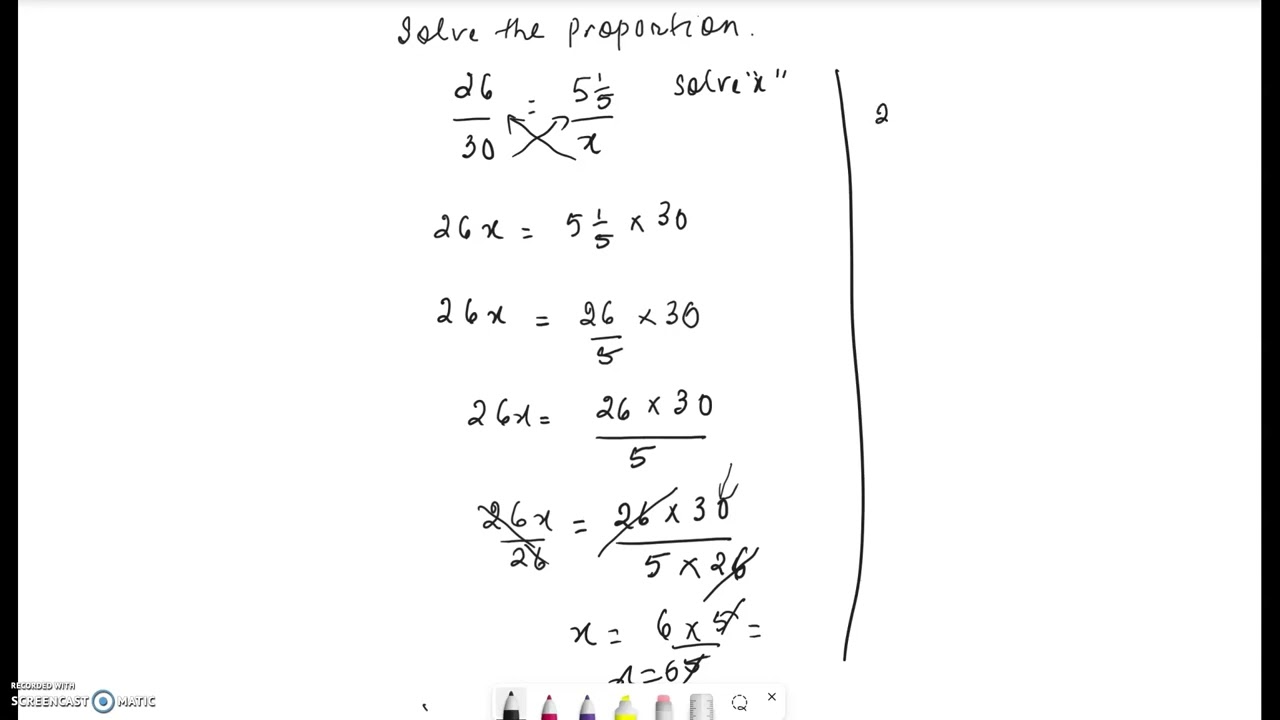 Solve the proportion.
26/30 = 5 1/5 / x solve "x"
26x = 5 1/5 × 30
26x = 26/5 × 30
26x = 26 × 30 / 5
26x/26 = 26 × 30 / 5 × 26
x = 6 × 5 / 5 =
x = 6
2
RECORDED WITH
SCREENCAST MATIC